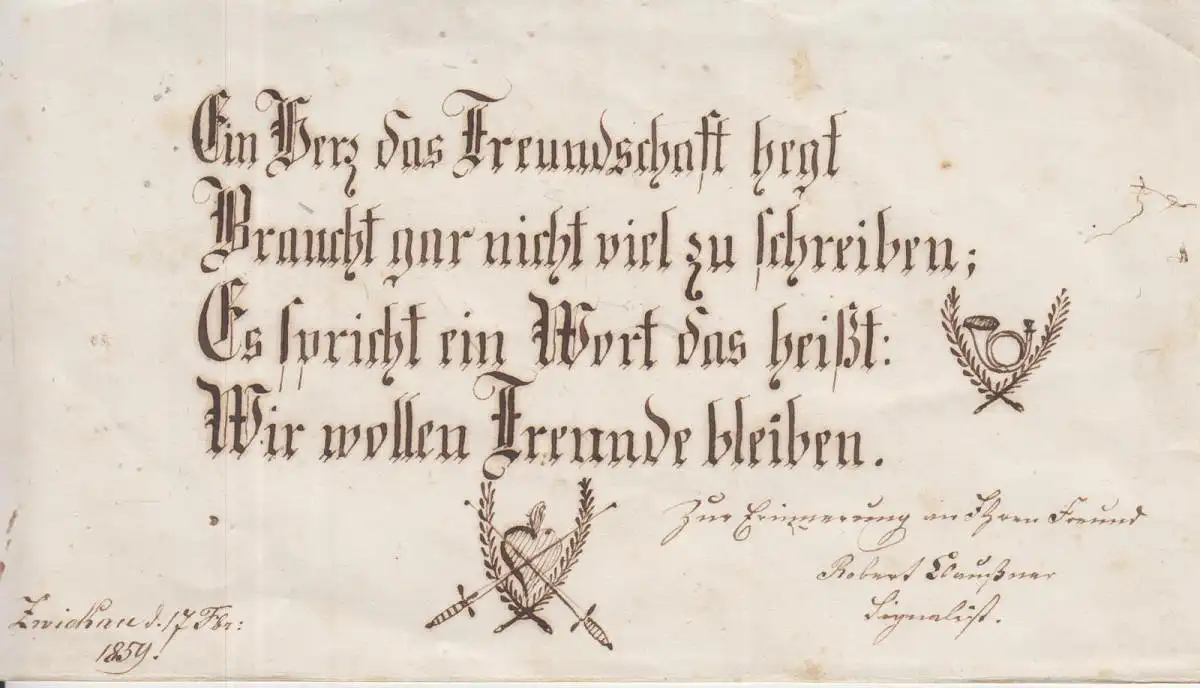 Ein Herz das Freundschaft hegt
Braucht gar nicht viel zu schreiben;
Es spricht ein Wort das heißt:
Wir wollen Freunde bleiben.
Zur Erinnerung an Ihren Freund
Robert Claußner
Signalist.
Zwickau d. 17 Fbr:
1859.